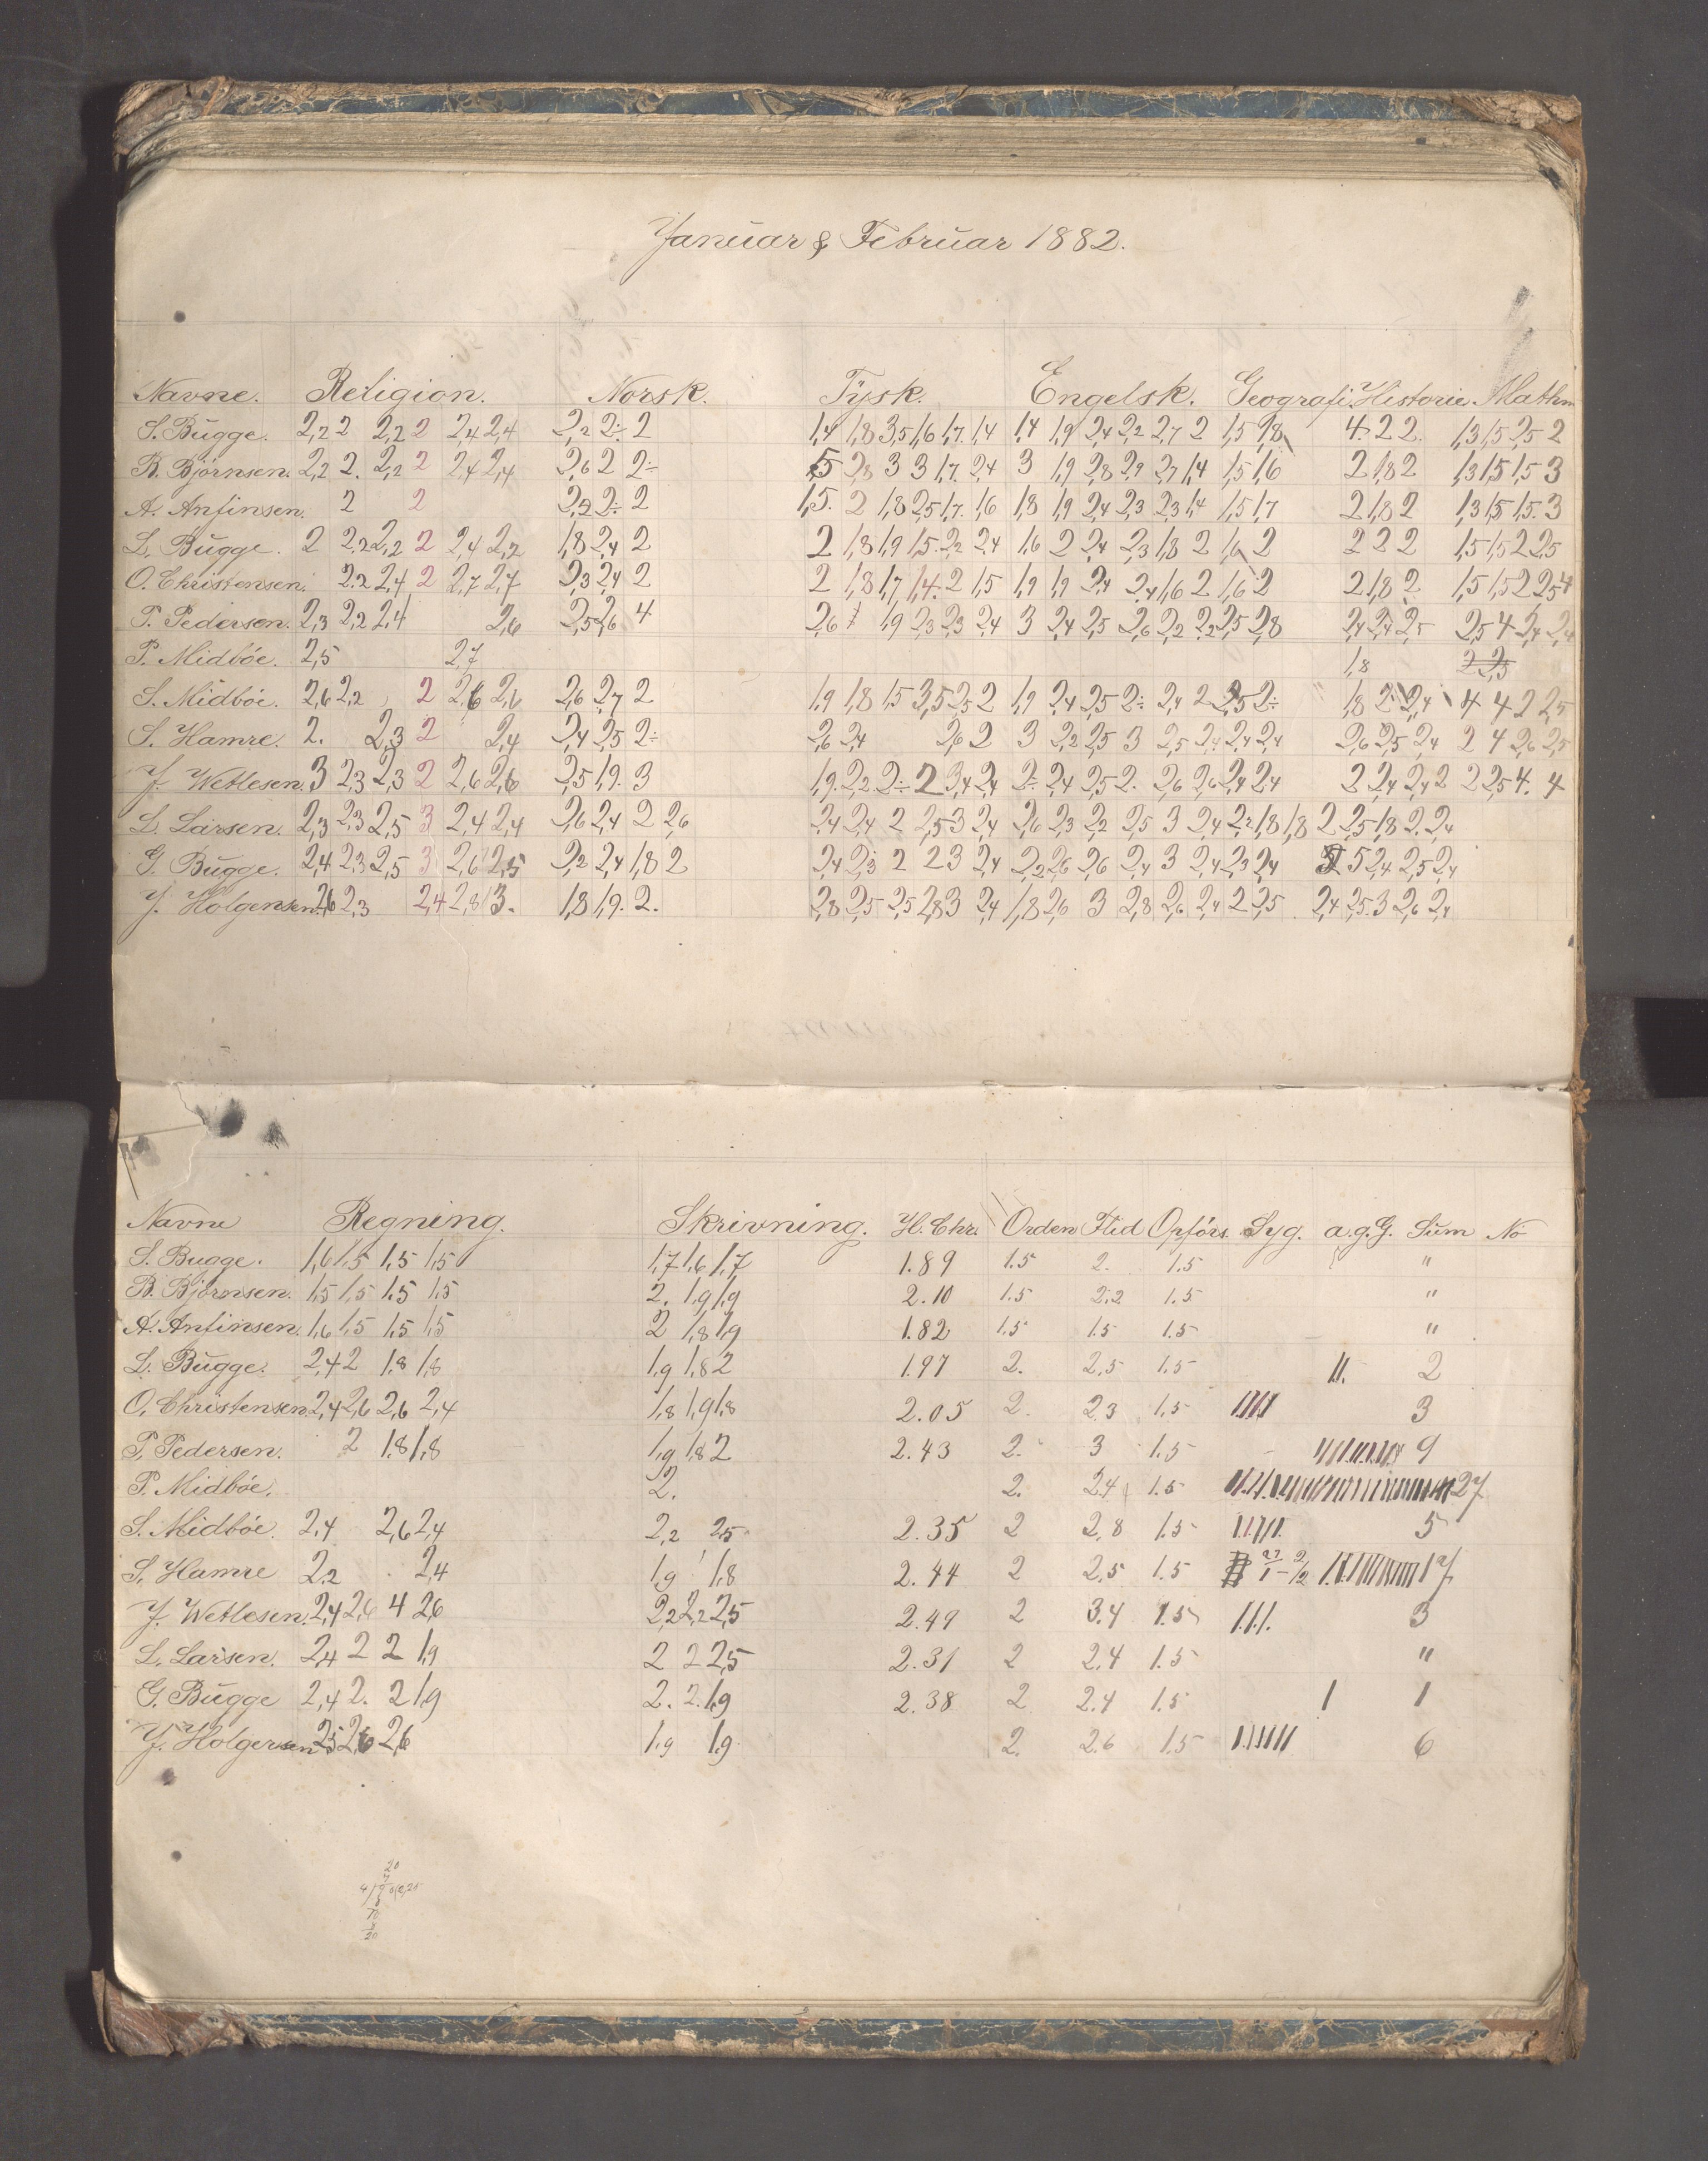 Januar & Februar 1882.
Navne. Religion. Norsk. Tysk. Engelsk. Geografi. Historie. Mathm
S. Bugge. 2,2 2 2,2 2 2,4 2,4 2,2 2÷ 2 1,4 1,8 3,5 1,6 1,7. 1,4 1,4 1,9 2,4 2,2 2,7 2 1,5 1,8 4. 2 2. 1,3 1,5 2,5 2
B. Björnsen. 2,2 2. 2,2 2 2,4 2,4 2,6 2 2÷ 5 2,8 3 3 1,7. 2,4 3 1,9 2,8 2,9 2,7 1,4 1,5 1,6 2 1,8 2 1,3 1,5 1,5 3
A. Anfinsen. 2 2 2,2 2÷ 2 1,5. 2 1,8 2,5 1,7. 1,6 1,8 1,9 2,4 2,3 2,3 1,4 1,5 1,7 2 1,8 2 1,3 1,5 1,5. 3
L. Bugge. 2 2,2 2,2 2 2,4 2,2 1,8 2,4 2 2 1,8 1,9 1,5. 2,2 2,4 1,6 2 2,4 2,3 1,8 2 1,6 2 2 2 2 1,5 1,5 2 2,5
O. Christensen. 2,2 2,4 2 2,7 2,7 2,3 2,4 2 2 1,8 1,7 1,4. 2 1,5 1,9 1,9 2,4 2,4 1,6 2 1,6 2 2 1,8 2 1,5 1,5 2 2,5 4
P. Pedersen. 2,3 2,2 2,4 2,6 2,5 2,6 4 2,6 1,9 2,3 2,3 2,4 3 2,4 2,5 2,6 2,2 2,2 2,5 2,8 2,4 2,4 2,5 2,5 4 2,4 2,4
P. Midböe. 2,5 2,7 1,8 2 2,3
S. Midböe. 2,6 2,2 2 2,6 2,6 2,6 2,7 2 1,9 1,8 1,5 3,5 2,5 2 1,9 2,4 2,5 2÷ 2,4 2 2,5 2÷ 1,8 2 2,4 4 4 2 2,5
S. Hamre. 2. 2,3 2 2,4 2,4 2,5 2÷ 2,6 2,4 2,6 2 3 2,2 2,5 3 2,5 2,4 2,4 2,4 2,6 2,5 2,4 2 4 2,6 2,5
J. Wetlesen. 3 2,3 2,3 2 2,6 2,6 2,5 1,9. 3 1,9. 2,2 2÷ 2 3,4 2,4 2÷ 2,4 2,5 2. 2,6 2,6 2,4 2,4 2 2,4 2,4 2 2 2,5 4. 4
L. Larsen. 2,3 2,3 2,5 3 2,4 2,4 2,6 2,4 2 2,6 2,4 2,4 2 2,5 3 2,4 2,6 2,3 2,2 2,5 3 2,4 2,2 1,8 1,8 2 2,5 1,8 2. 2,4
G. Bugge. 2,4 2,3 2,5 3 2,6 2,5 2,2 2,4 1,8 2 2,4 2,3 2 2 3 2,4 2,2 2,6 2,6 2,4 3 2,4 2,3 2,4 5 2,4 2,5 2,4
J. Holgersen. 2,6 2,3 2,4 2,8 3. 1,8 1,9. 2. 2,8 2,5 2,5 2,8 3 2,4 1,8 2,6 3 2,8 2,6 2,4 2 2,5 2,4 2,5. 3 2,6 2,4
Navne Regning. Skrivning. H. Chr. Orden Flid Opförs. Syg. a.g.G. Sum No
S. Bugge. 1,6 1,5 1,5 1,5 1,7 1,6 1,7 1.89 1.5 2. 1.5 "
B. Björnsen. 1,5 1,5 1,5 1,5 2. 1,9 1,9 2.10 1.5 2.2 1.5 "
A. Anfinsen. 1,6 1,5 1,5 1,5 2 1,8 1,9 1.82 1.5 1.5 1.5 "
L. Bugge. 2,4 2 1,8 1,8 1,9 1,8 2 1.97 2. 2,5 1.5 11. 2
O. Christensen 2,4 2,6 2,6 2,4 1,8 1,9 1,8 2.05 2. 2.3 1.5 3
P. Pedersen. 2 1,8 1,8 1,9 1,8 2 2.43 2. 3 1.5 9
P. Midböe. 2. 2. 2.4 1.5 27
S. Midböe. 2,4 2,6 2,4 2,2 2,5 2.35 2 2,8 1.5 5
S. Hamre 2,2 2,4 1,9 1,8 2.44 2 2,5 1.5 17
J. Wetlesen. 2,4 2,6 4 2,6 2,2 2,2 2,5 2.49 2 3.4 1.5 1.1.1. 3
L. Larsen. 2,4 2 2 1,9 2 2 2,5 2.31 2 2.4 1.5 "
G. Bugge 2,4 2. 2 1,9 2. 2. 1,9 2.38 2 2.4 1.5 1 1
J. Holgersen 2,5 2,6 2,6 1,9 1,9 2. 2.6 1.5 6